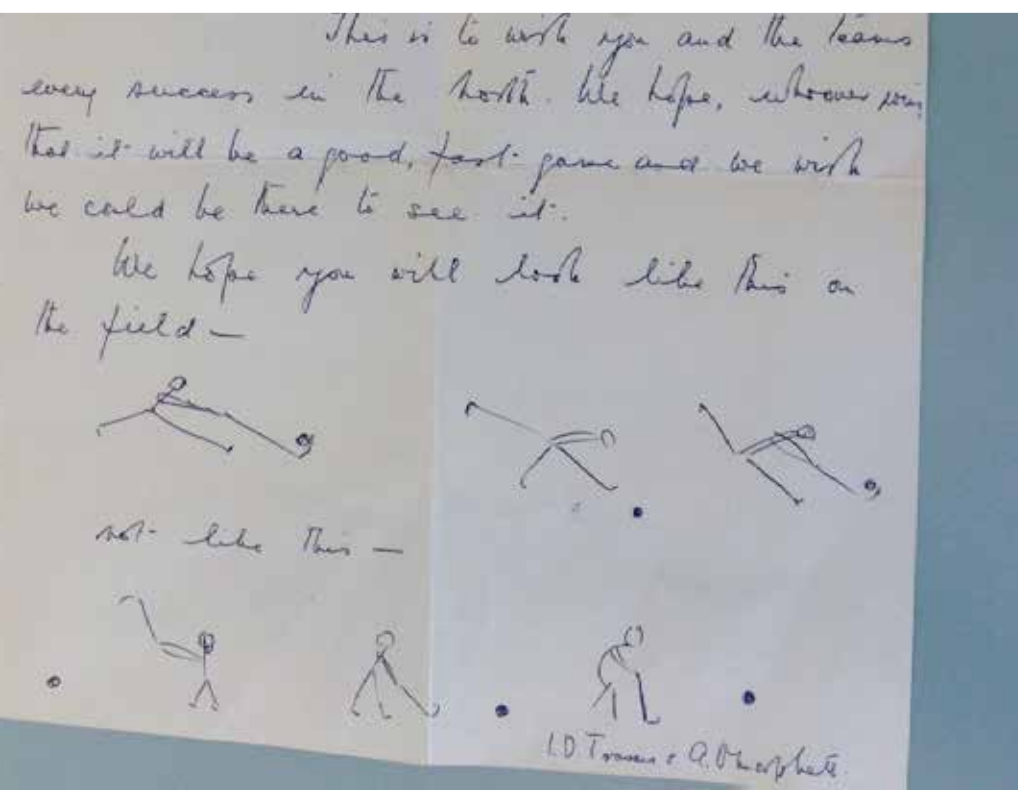 This is to wish you and the teams
every success in the North. We hope, whoever wins,
that it will be a good, fast game and we wish
we could be there to see it.
We hope you will look like this on
the field —
not like this —
I.D. &